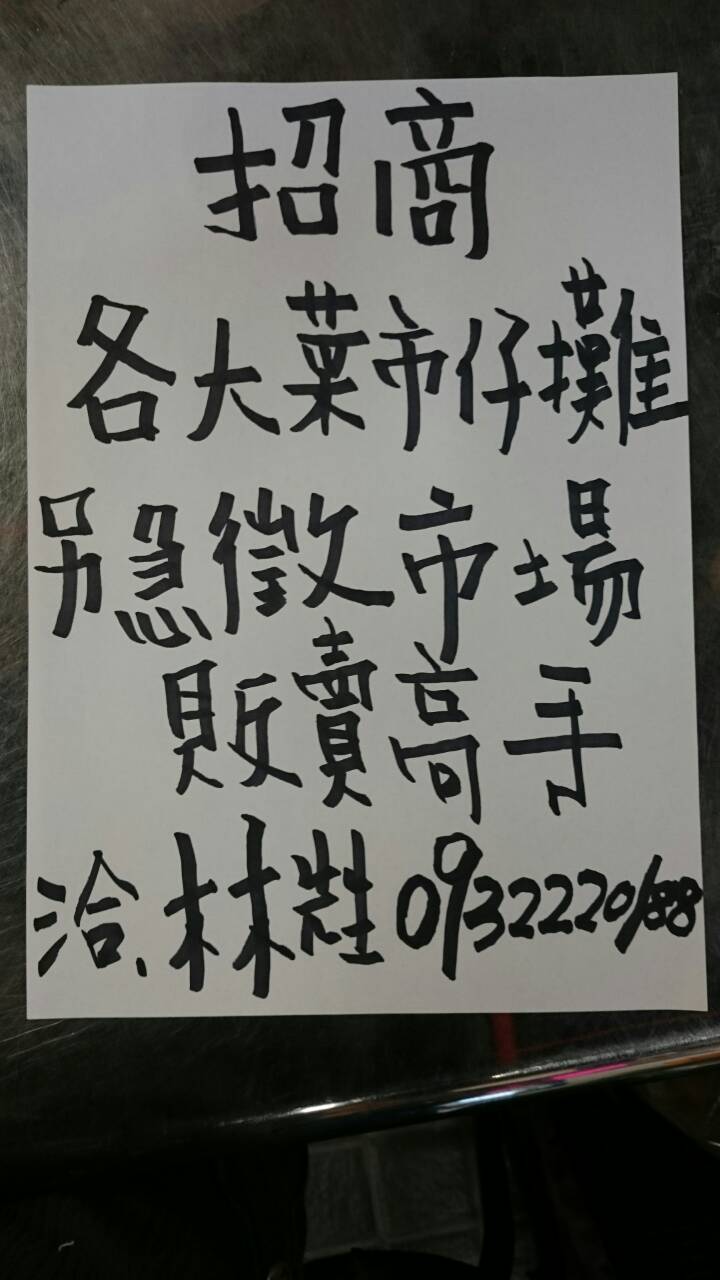 招商
各大菜市仔攤
另急徵市場
販賣高手
洽、林先生0932220188